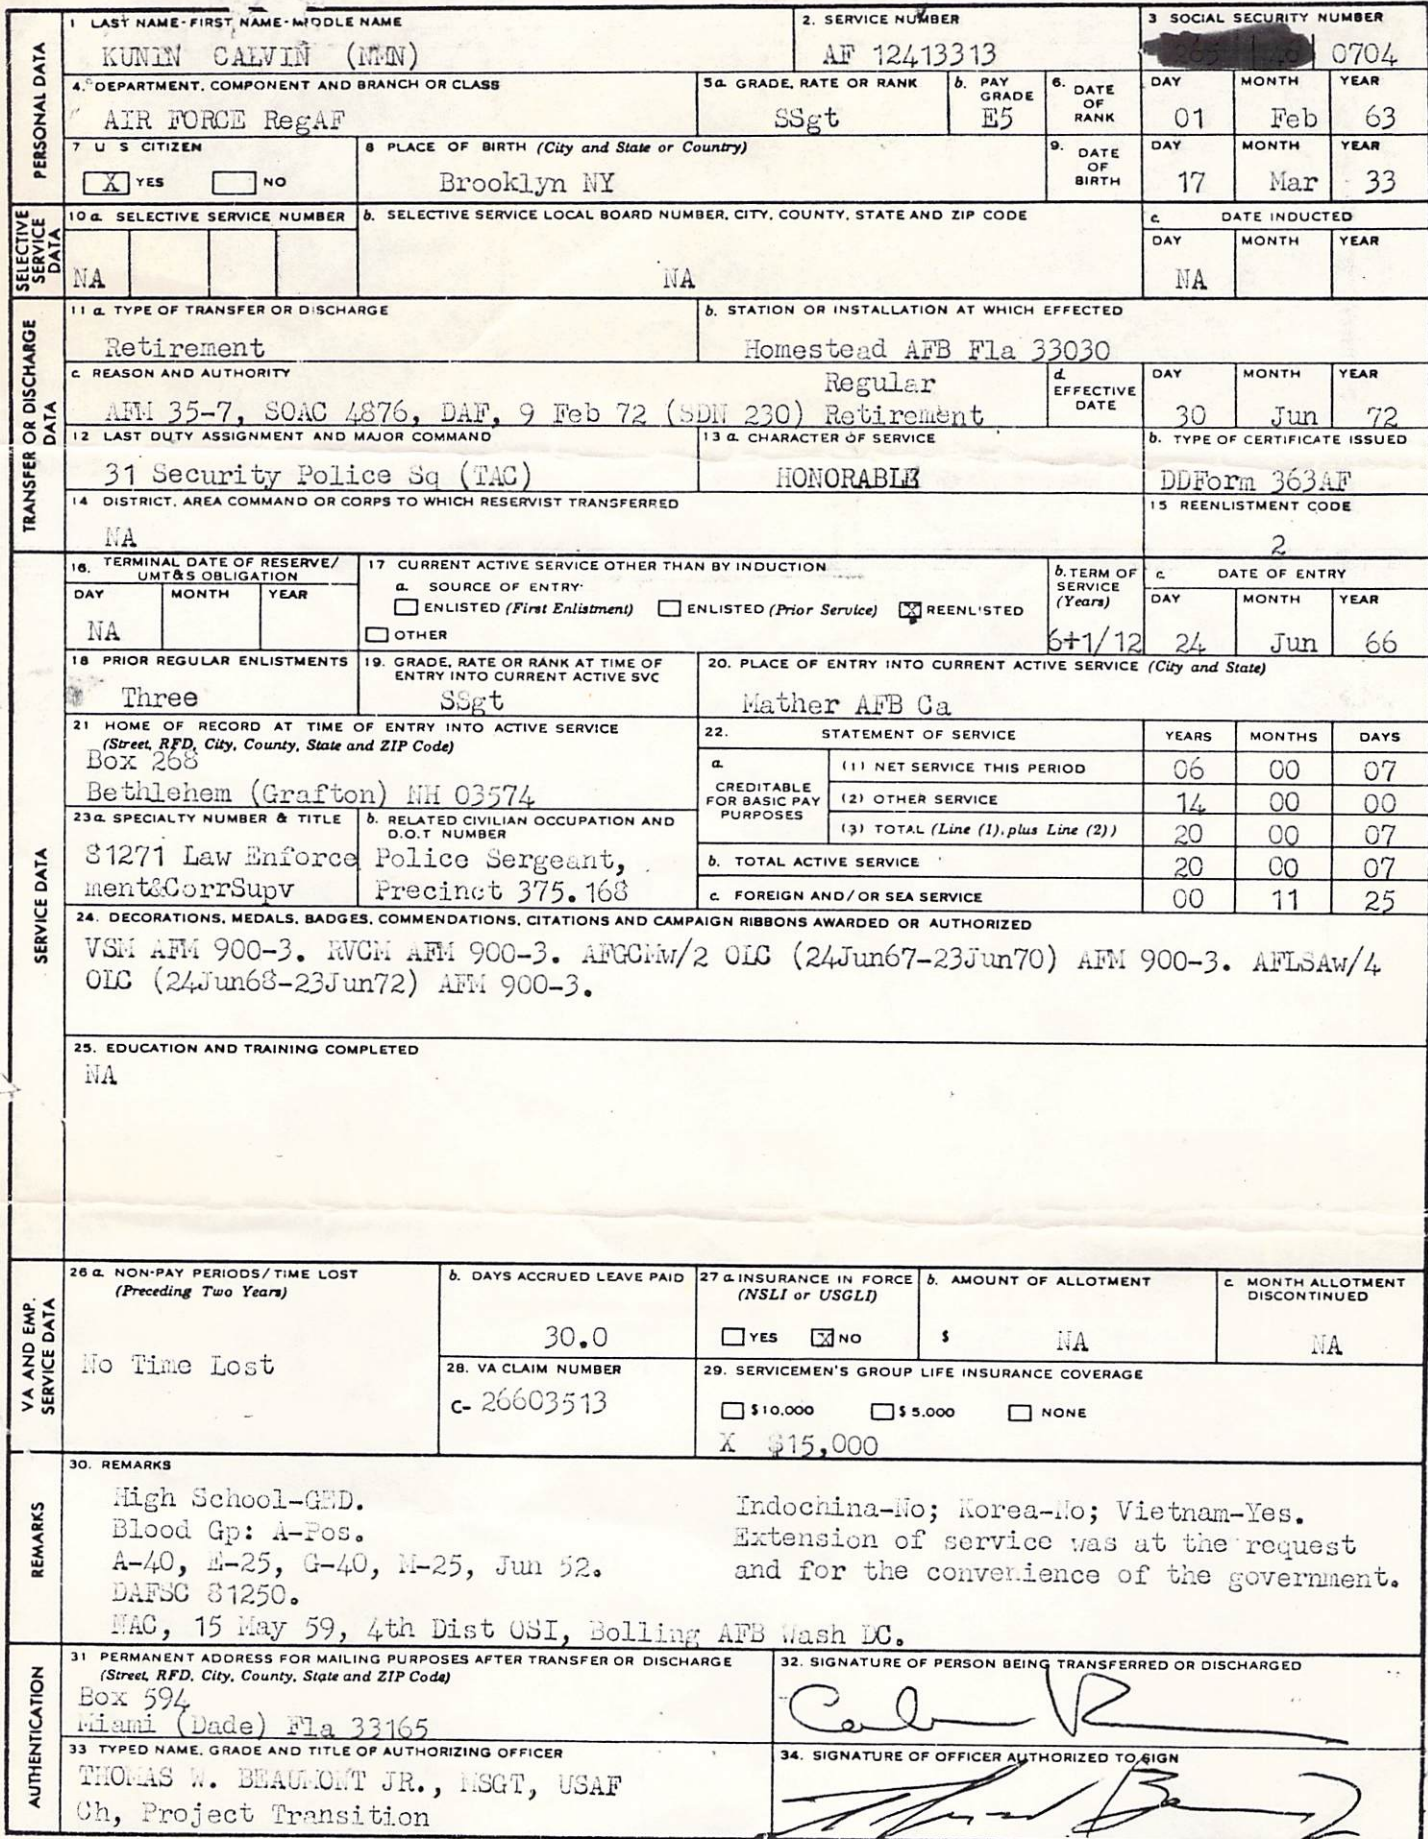 PERSONAL DATA
1 LAST NAME-FIRST NAME-MIDDLE NAME
KUNIN CALVIN (NMN)
2. SERVICE NUMBER
AF 12413313
3 SOCIAL SECURITY NUMBER
0704
4. DEPARTMENT, COMPONENT AND BRANCH OR CLASS
AIR FORCE RegAF
5a. GRADE, RATE OR RANK
SSgt
b. PAY GRADE
E5
6. DATE OF RANK
DAY MONTH YEAR
01 Feb 63
7 U S CITIZEN
X YES NO
8 PLACE OF BIRTH (City and State or Country)
Brooklyn NY
9. DATE OF BIRTH
DAY MONTH YEAR
17 Mar 33
SELECTIVE SERVICE DATA
10 a. SELECTIVE SERVICE NUMBER
NA
b. SELECTIVE SERVICE LOCAL BOARD NUMBER, CITY, COUNTY, STATE AND ZIP CODE
NA
c. DATE INDUCTED
DAY MONTH YEAR
NA
TRANSFER OR DISCHARGE DATA
11 a. TYPE OF TRANSFER OR DISCHARGE
Retirement
b. STATION OR INSTALLATION AT WHICH EFFECTED
Homestead AFB Fla 33030
c. REASON AND AUTHORITY
Regular
AFM 35-7, SOAC 4876, DAF, 9 Feb 72 (SDN 230) Retirement
d. EFFECTIVE DATE
DAY MONTH YEAR
30 Jun 72
12 LAST DUTY ASSIGNMENT AND MAJOR COMMAND
31 Security Police Sq (TAC)
13 a. CHARACTER OF SERVICE
HONORABLE
b. TYPE OF CERTIFICATE ISSUED
DDForm 363AF
14 DISTRICT, AREA COMMAND OR CORPS TO WHICH RESERVIST TRANSFERRED
NA
15 REENLISTMENT CODE
2
SERVICE DATA
16. TERMINAL DATE OF RESERVE/ UMT&S OBLIGATION
DAY MONTH YEAR
NA
17 CURRENT ACTIVE SERVICE OTHER THAN BY INDUCTION
a. SOURCE OF ENTRY:
ENLISTED (First Enlistment) ENLISTED (Prior Service) X REENLISTED
OTHER
b. TERM OF SERVICE (Years)
6+1/12
c. DATE OF ENTRY
DAY MONTH YEAR
24 Jun 66
18 PRIOR REGULAR ENLISTMENTS
Three
19. GRADE, RATE OR RANK AT TIME OF ENTRY INTO CURRENT ACTIVE SVC
SSgt
20. PLACE OF ENTRY INTO CURRENT ACTIVE SERVICE (City and State)
Mather AFB Ca
21 HOME OF RECORD AT TIME OF ENTRY INTO ACTIVE SERVICE
(Street, RFD, City, County, State and ZIP Code)
Box 268
Bethlehem (Grafton) NH 03574
22. STATEMENT OF SERVICE YEARS MONTHS DAYS
a. CREDITABLE FOR BASIC PAY PURPOSES
(1) NET SERVICE THIS PERIOD 06 00 07
(2) OTHER SERVICE 14 00 00
(3) TOTAL (Line (1), plus Line (2)) 20 00 07
b. TOTAL ACTIVE SERVICE 20 00 07
c. FOREIGN AND/OR SEA SERVICE 00 11 25
23a. SPECIALTY NUMBER & TITLE
81271 Law Enforce
ment&CorrSupv
b. RELATED CIVILIAN OCCUPATION AND D.O.T NUMBER
Police Sergeant,
Precinct 375.168
24. DECORATIONS, MEDALS, BADGES, COMMENDATIONS, CITATIONS AND CAMPAIGN RIBBONS AWARDED OR AUTHORIZED
VSM AFM 900-3. RVCM AFM 900-3. AFGCMw/2 OLC (24Jun67-23Jun70) AFM 900-3. AFLSAw/4
OLC (24Jun68-23Jun72) AFM 900-3.
25. EDUCATION AND TRAINING COMPLETED
NA
VA AND EMP. SERVICE DATA
26 a. NON-PAY PERIODS/TIME LOST
(Preceding Two Years)
No Time Lost
b. DAYS ACCRUED LEAVE PAID
30.0
27 a. INSURANCE IN FORCE
(NSLI or USGLI)
YES X NO
b. AMOUNT OF ALLOTMENT
$ NA
c. MONTH ALLOTMENT DISCONTINUED
NA
28. VA CLAIM NUMBER
C- 26603513
29. SERVICEMEN'S GROUP LIFE INSURANCE COVERAGE
$10,000 $5,000 NONE
X $15,000
REMARKS
30. REMARKS
High School-GED.
Blood Gp: A-Pos.
A-40, E-25, G-40, M-25, Jun 52.
DAFSC 81250.
NAC, 15 May 59, 4th Dist OSI, Bolling AFB Wash DC.
Indochina-No; Korea-No; Vietnam-Yes.
Extension of service was at the request
and for the convenience of the government.
AUTHENTICATION
31 PERMANENT ADDRESS FOR MAILING PURPOSES AFTER TRANSFER OR DISCHARGE
(Street, RFD, City, County, State and ZIP Code)
Box 594
Miami (Dade) Fla 33165
32. SIGNATURE OF PERSON BEING TRANSFERRED OR DISCHARGED
33 TYPED NAME, GRADE AND TITLE OF AUTHORIZING OFFICER
THOMAS W. BEAUMONT JR., MSGT, USAF
Ch, Project Transition
34. SIGNATURE OF OFFICER AUTHORIZED TO SIGN